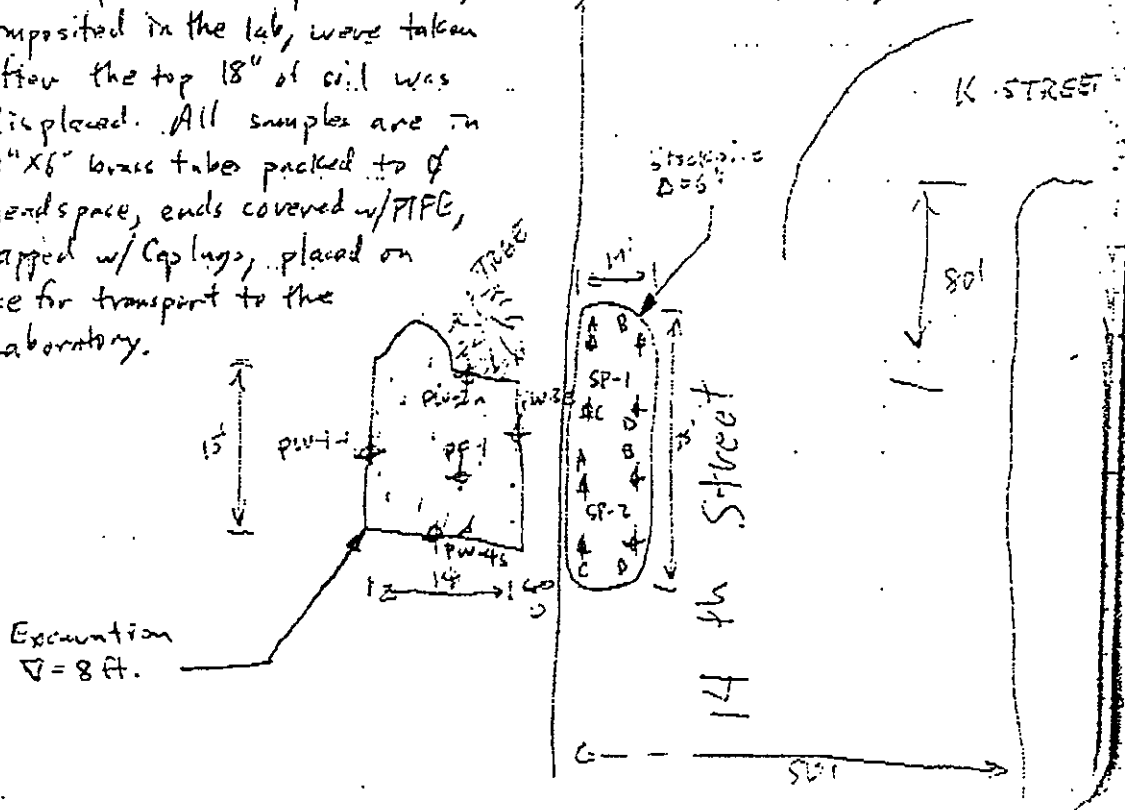 composited in the lab, were taken
after the top 18" of soil was
displaced. All samples are in
"X6" brass tubes packed to Ø
headspace, ends covered w/PTFE,
capped w/ Caplugs, placed on
ice for transport to the
laboratory.
K STREET
Stockpile
Δ=6'
TREE
80'
A B
SP-1
C D
A B
SP-2
C D
15'
PF-1
PW-4s
14
14th Street
Excavation
∇=8 ft.